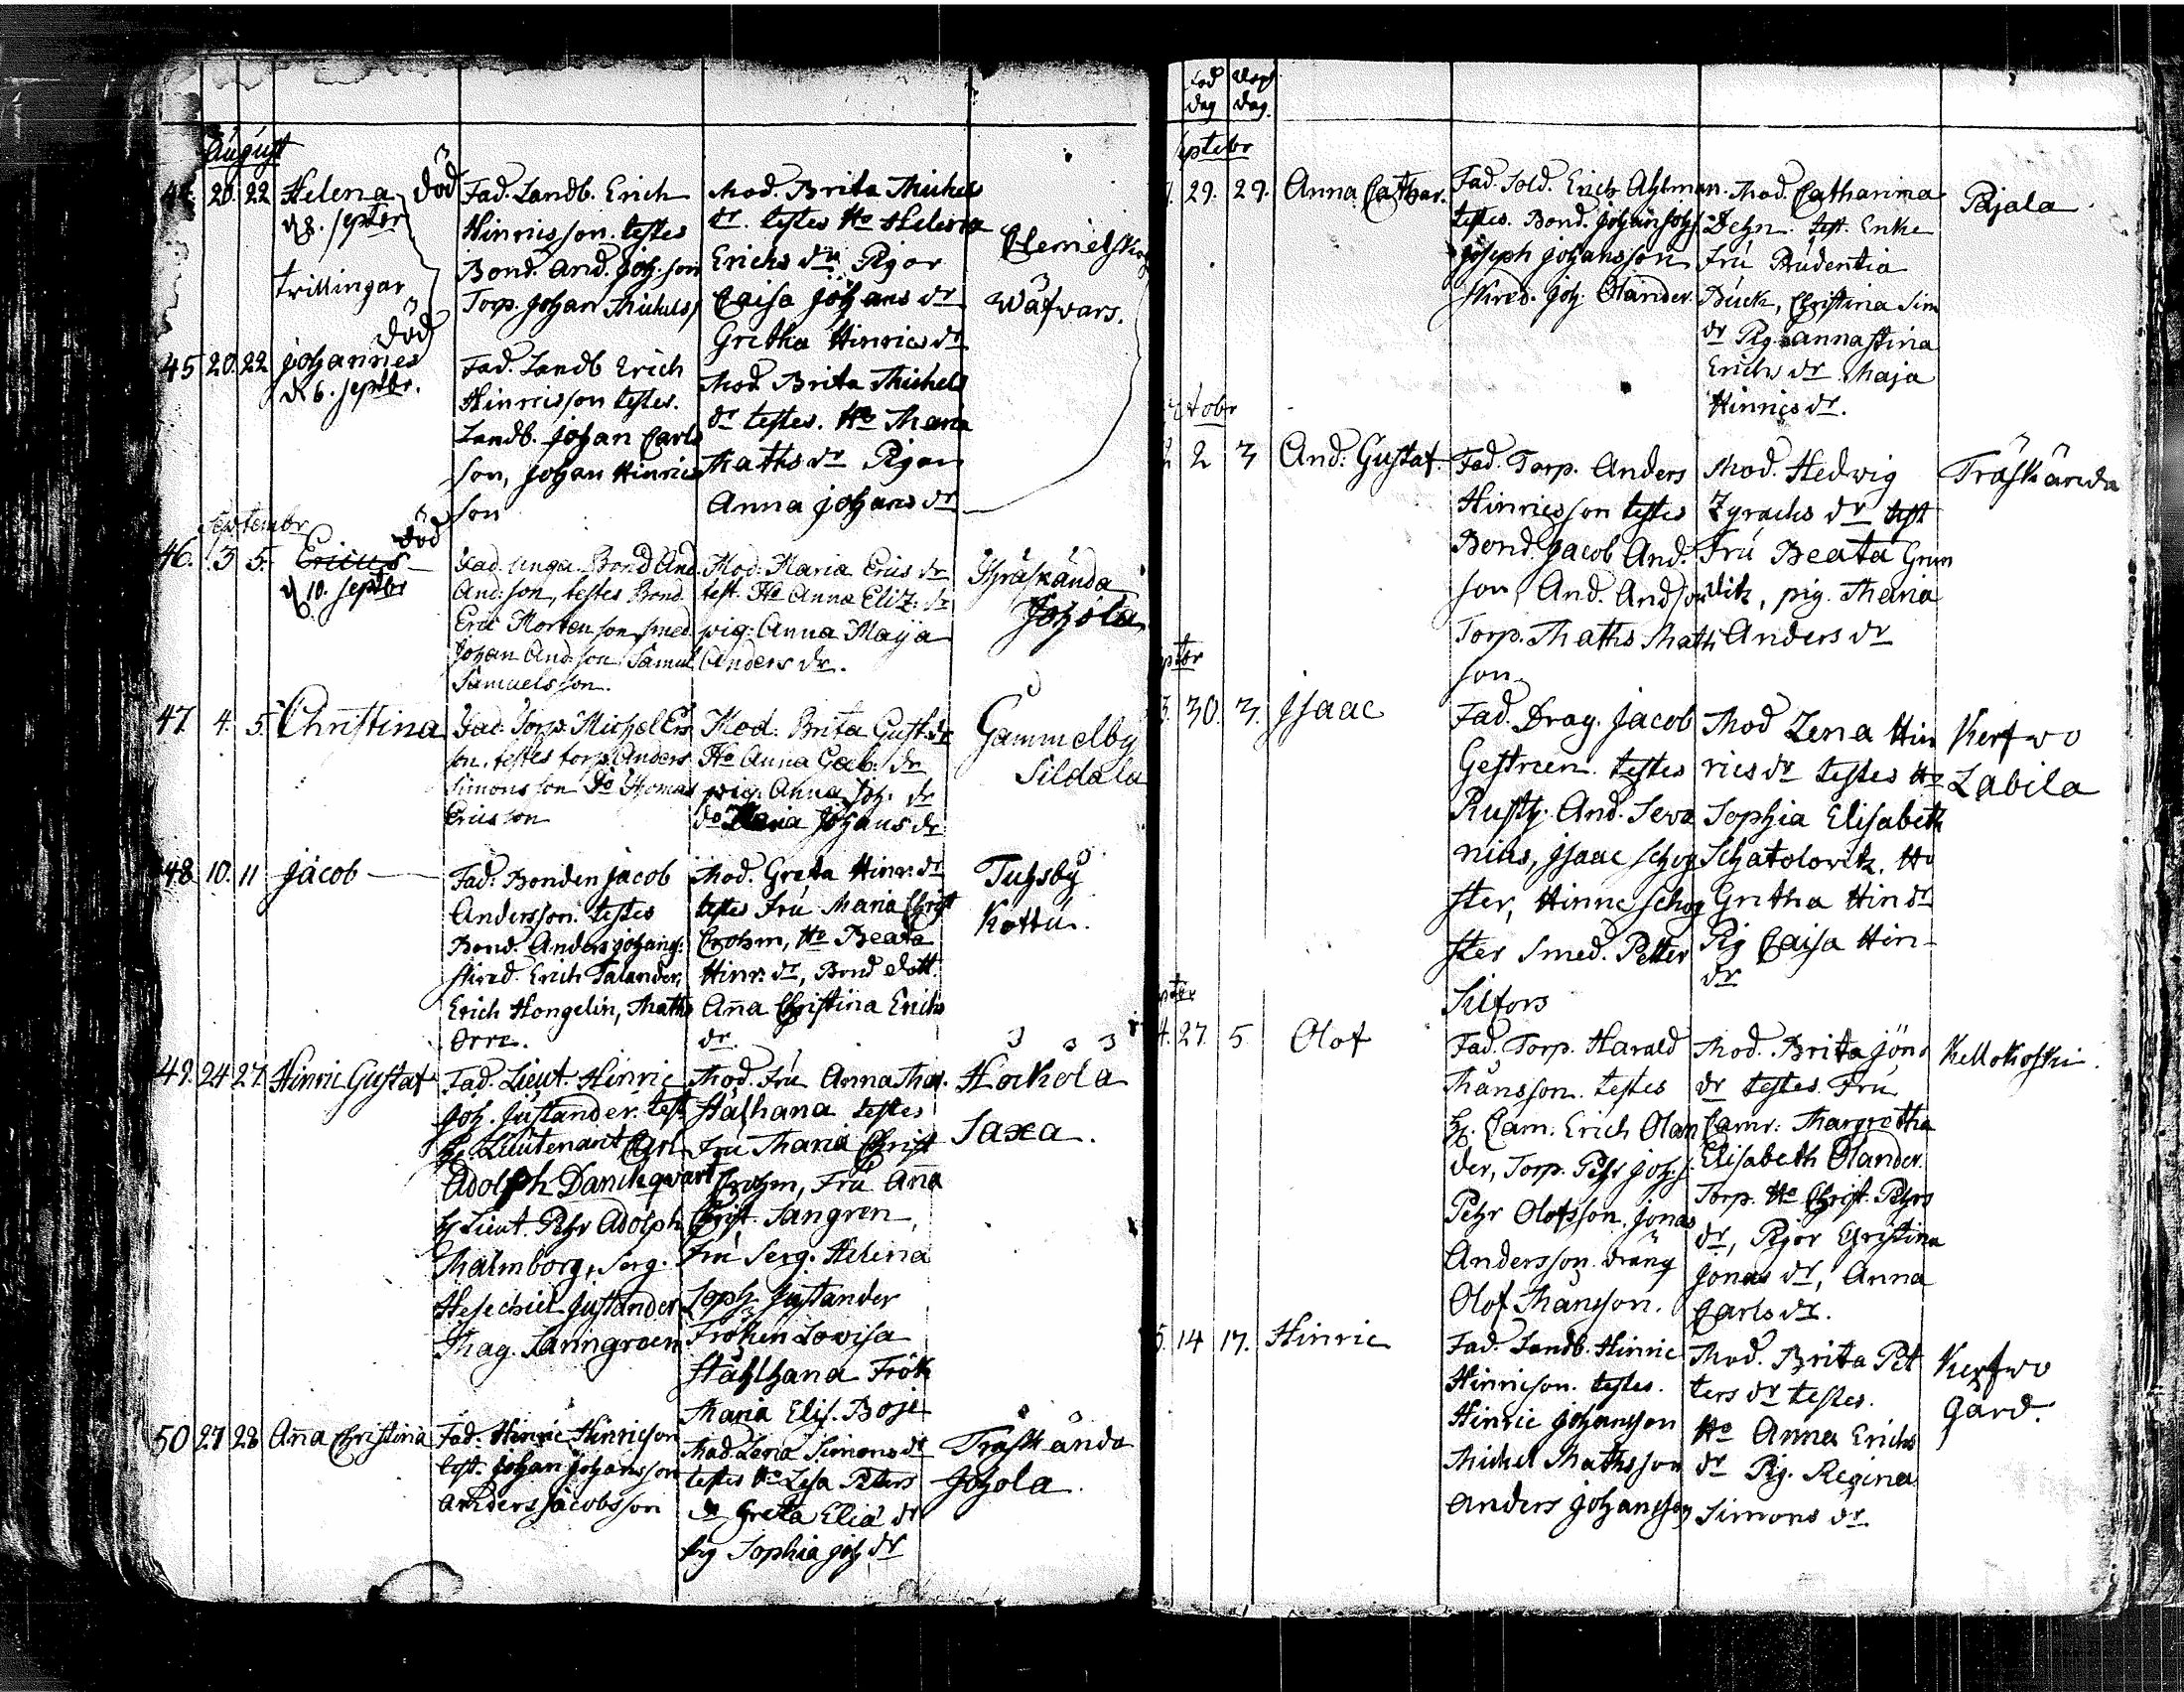 August
44. 20. 22 Helena död
d 8. septbr
trillingar
Fad. Landb. Erich
Hinricsson. testes
Bond. And. Joh. son
Torp. Johan Michels
Mod. Brita Michels
dr. testes Ho Helena
Erichs dr Pigor
Caisa Johans dr
Gretha Hinrics dr
Wäfwars.
död
45 20. 22 Johannes
d 6. septbr.
Fad. Landb Erich
Hinricsson testes.
Landb. Johan Carls
son, Johan Hinrics
son
Mod. Brita Michels
dr testes. Ho Maria
Maths dr Pigan
Anna Johans dr
Septembr
död
46. 3 5. Ericus
d 10. septbr
Fad. unga Bond And.
And. son, testes Bond
Eric Mortenson, smed
Johan And. son Samul
Samuelsson.
Mod: Maria Erics dr
test. Ho Anna Eliz. dr
pig. Anna Maija
Anders dr.
Thräskända
Johola
47 4. 5. Christina
Fad. Torp. Michel Ers
son. testes torp. Anders
Simonsson Do Thomas
Ericsson
Mod. Brita Gust. dr
Ho Anna Gab. dr
pig. Anna Joh. dr
do Maria Johans dr
Gammelby
Sildala
48 10. 11 Jacob
Fad. Bonden Jacob
Andersson. testes
Bond. Anders Johans:
skred. Erich Talander,
Erich Hongelin, Maths
Orre.
Mod. Greta Hinr. dr
testes Fru Maria Christ
Crohm, Ho Beata
Hinr. dr, Bond dott.
Anna Christina Erichs
dr.
Tuhsby
Kottu.
49. 24 27. Hinric Gustaf
Fad. Lieut. Hinric
Joh. Justander. test
H. Lieutenant Carl
Adolph Danckqwart
H Lieut. Pehr Adolph
Malmborg, Serg.
Hesechiel Justander
Mag. Lanngroen
Mod. Fru Anna Mar.
Stålhana testes
Fru Maria Christ
Crohm, Fru Anna
Christ. Sangren,
Fru Serg. Helena
Soph. Justander
Fröken Lovisa
Ståhlhana Frök
Maria Elis. Boje
Hockola
Saxa.
50 27 28 Anna Christina
Fad. Hinric Hinricson
test. Johan Johansson
Anders Jacobsson
Mod. Lena Simons dr
testes Ho Lisa Peters
dr Greta Elia dr
pig Sophia Joh dr
Träskända
Johola.
Föd dag
Döpt dag.
septebr
29. 29. Anna Cathar.
Fad. Sold. Erich Ahlman.
testes. Bond. Johan Johs
Joseph Johansson
skred. Joh. Olander
Mod. Catharina
Dehn. test. Enke
Fru Prudentia
Buck, Christina Sim
dr Pig. Annastina
Erichs dr Maja
Hinrics dr.
Pajala
ctobr
2 3 And: Gustaf.
Fad. Torp. Anders
Hinricsson testes
Bond. Jacob And.
son, And. Andson
Torp. Maths Maths
son
Mod. Hedwig
Zyrachs dr test
Fru Beata Grun
ditz, pig. Maria
Anders dr
Träskända
ptbr
30. 3. Isaac
Fad. Drag. Jacob
Gestrien. testes
Rusth. And. Seve
nius, Isaac Schog
ster, Hinric Schog
ster Smed. Petter
Silfors
Mod Lena Hin
rics dr testes Ho
Sophia Elisabeth
Schatolovitz. Ho
Gretha Hin dr
Pig Caisa Hin-
dr
Kerfwo
Labila
ptbr
4. 27. 5 Olof
Fad. Torp. Harald
Månsson. testes
H. Cam: Erich Olan
der, Torp. Pehr Joh. s.
Pehr Olofsson, Jonas
Andersson. dräng
Olof Månsson.
Mod. Brita Jöns
dr testes. Fru
Camr. Margretha
Elisabeth Olander.
Torp. Ho Christ. Pehrs
dr, Pigor Christina
Jonas dr, Anna
Carls dr.
Kellokoski.
5. 14 17. Hinric
Fad. Landb. Hinric
Hinricson. testes.
Hinric Johansson
Michel Mathsson
Anders Johansson
Mod. Brita Pet
ters dr testes.
Ho Anna Erichs
dr Pig. Regina
Simons dr
Kerfwo
Gård.